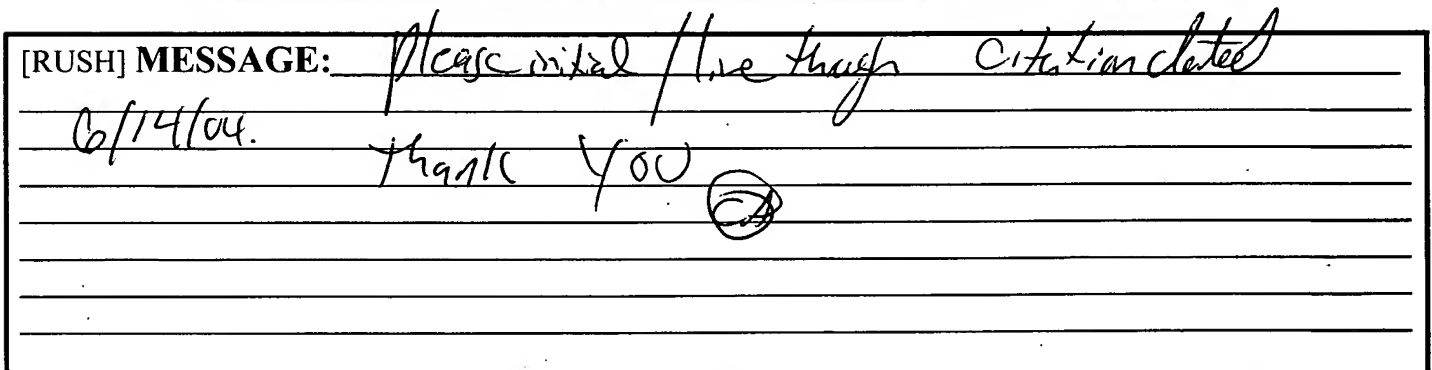 [RUSH] MESSAGE: Please initial / line through Citation dated
6/14/04.
Thank YOU